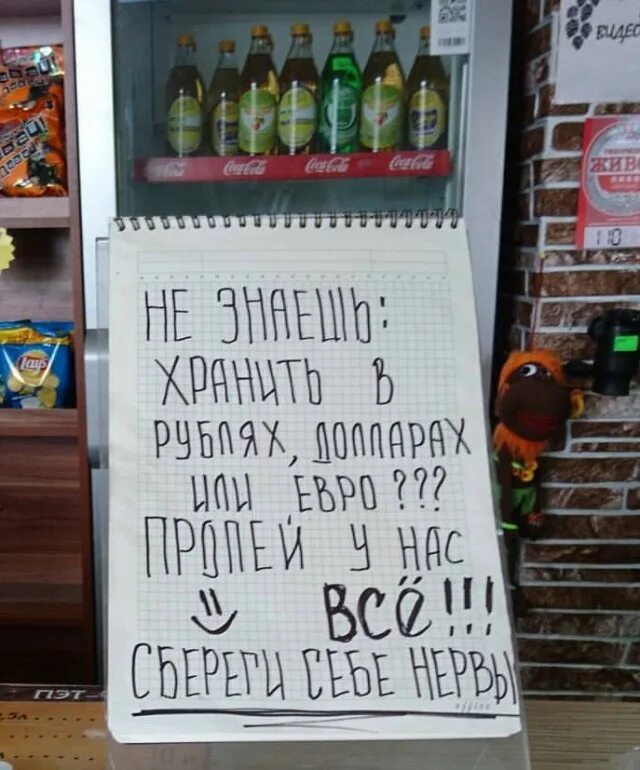 ВИДЕО
Coca-Cola Coca-Cola Coca-Cola Coca-Cola
ЖИВ
110
Lay's
НЕ ЗНАЕШЬ:
ХРАНИТЬ В
РУБЛЯХ, ДОЛЛАРАХ
ИЛИ ЕВРО ???
ПРОПЕЙ У НАС
ВСЁ!!!
СБЕРЕГИ СЕБЕ НЕРВЫ
ПЭТ